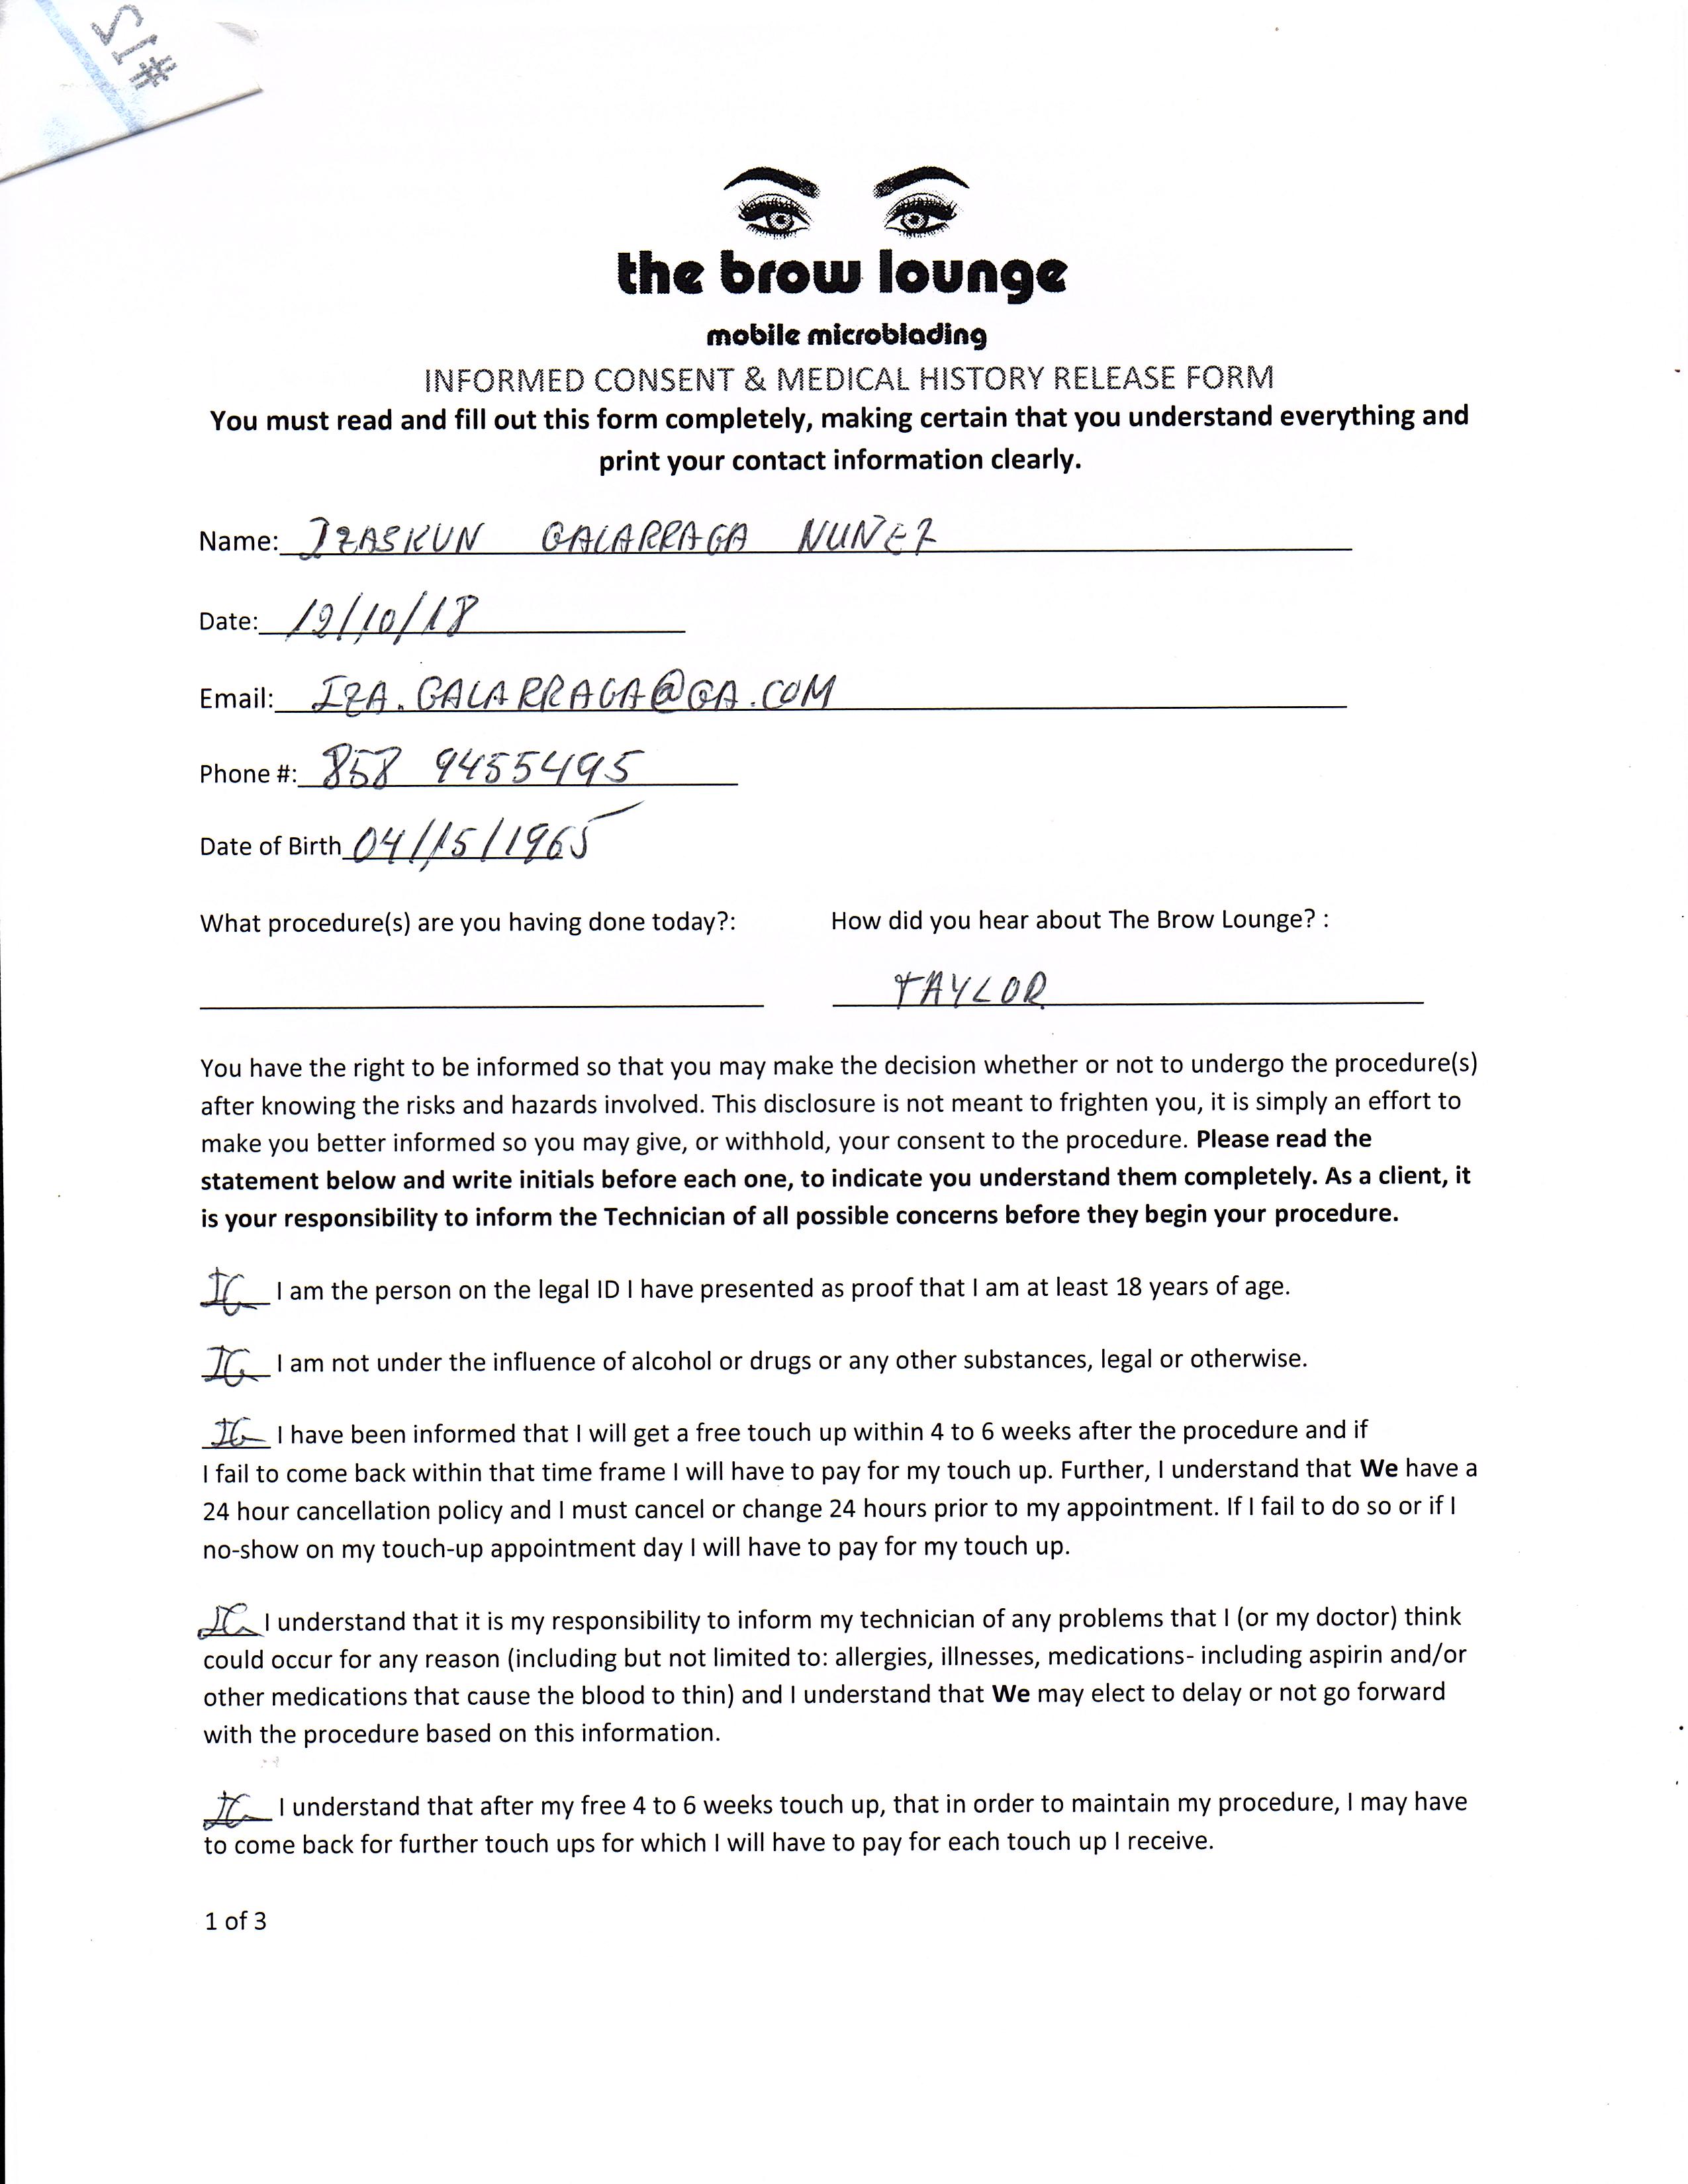 #12
the brow lounge
mobile microblading
INFORMED CONSENT & MEDICAL HISTORY RELEASE FORM
You must read and fill out this form completely, making certain that you understand everything and
print your contact information clearly.
Name: IZASKUN GALARRAGA NUÑEZ
Date: 12/10/18
Email: IZA.GALARRAGA@GA.COM
Phone #: 858 9455495
Date of Birth 04/15/1965
What procedure(s) are you having done today?: How did you hear about The Brow Lounge? :
TAYLOR
You have the right to be informed so that you may make the decision whether or not to undergo the procedure(s)
after knowing the risks and hazards involved. This disclosure is not meant to frighten you, it is simply an effort to
make you better informed so you may give, or withhold, your consent to the procedure. Please read the
statement below and write initials before each one, to indicate you understand them completely. As a client, it
is your responsibility to inform the Technician of all possible concerns before they begin your procedure.
IG I am the person on the legal ID I have presented as proof that I am at least 18 years of age.
IG I am not under the influence of alcohol or drugs or any other substances, legal or otherwise.
IG I have been informed that I will get a free touch up within 4 to 6 weeks after the procedure and if
I fail to come back within that time frame I will have to pay for my touch up. Further, I understand that We have a
24 hour cancellation policy and I must cancel or change 24 hours prior to my appointment. If I fail to do so or if I
no-show on my touch-up appointment day I will have to pay for my touch up.
IG I understand that it is my responsibility to inform my technician of any problems that I (or my doctor) think
could occur for any reason (including but not limited to: allergies, illnesses, medications- including aspirin and/or
other medications that cause the blood to thin) and I understand that We may elect to delay or not go forward
with the procedure based on this information.
IG I understand that after my free 4 to 6 weeks touch up, that in order to maintain my procedure, I may have
to come back for further touch ups for which I will have to pay for each touch up I receive.
1 of 3